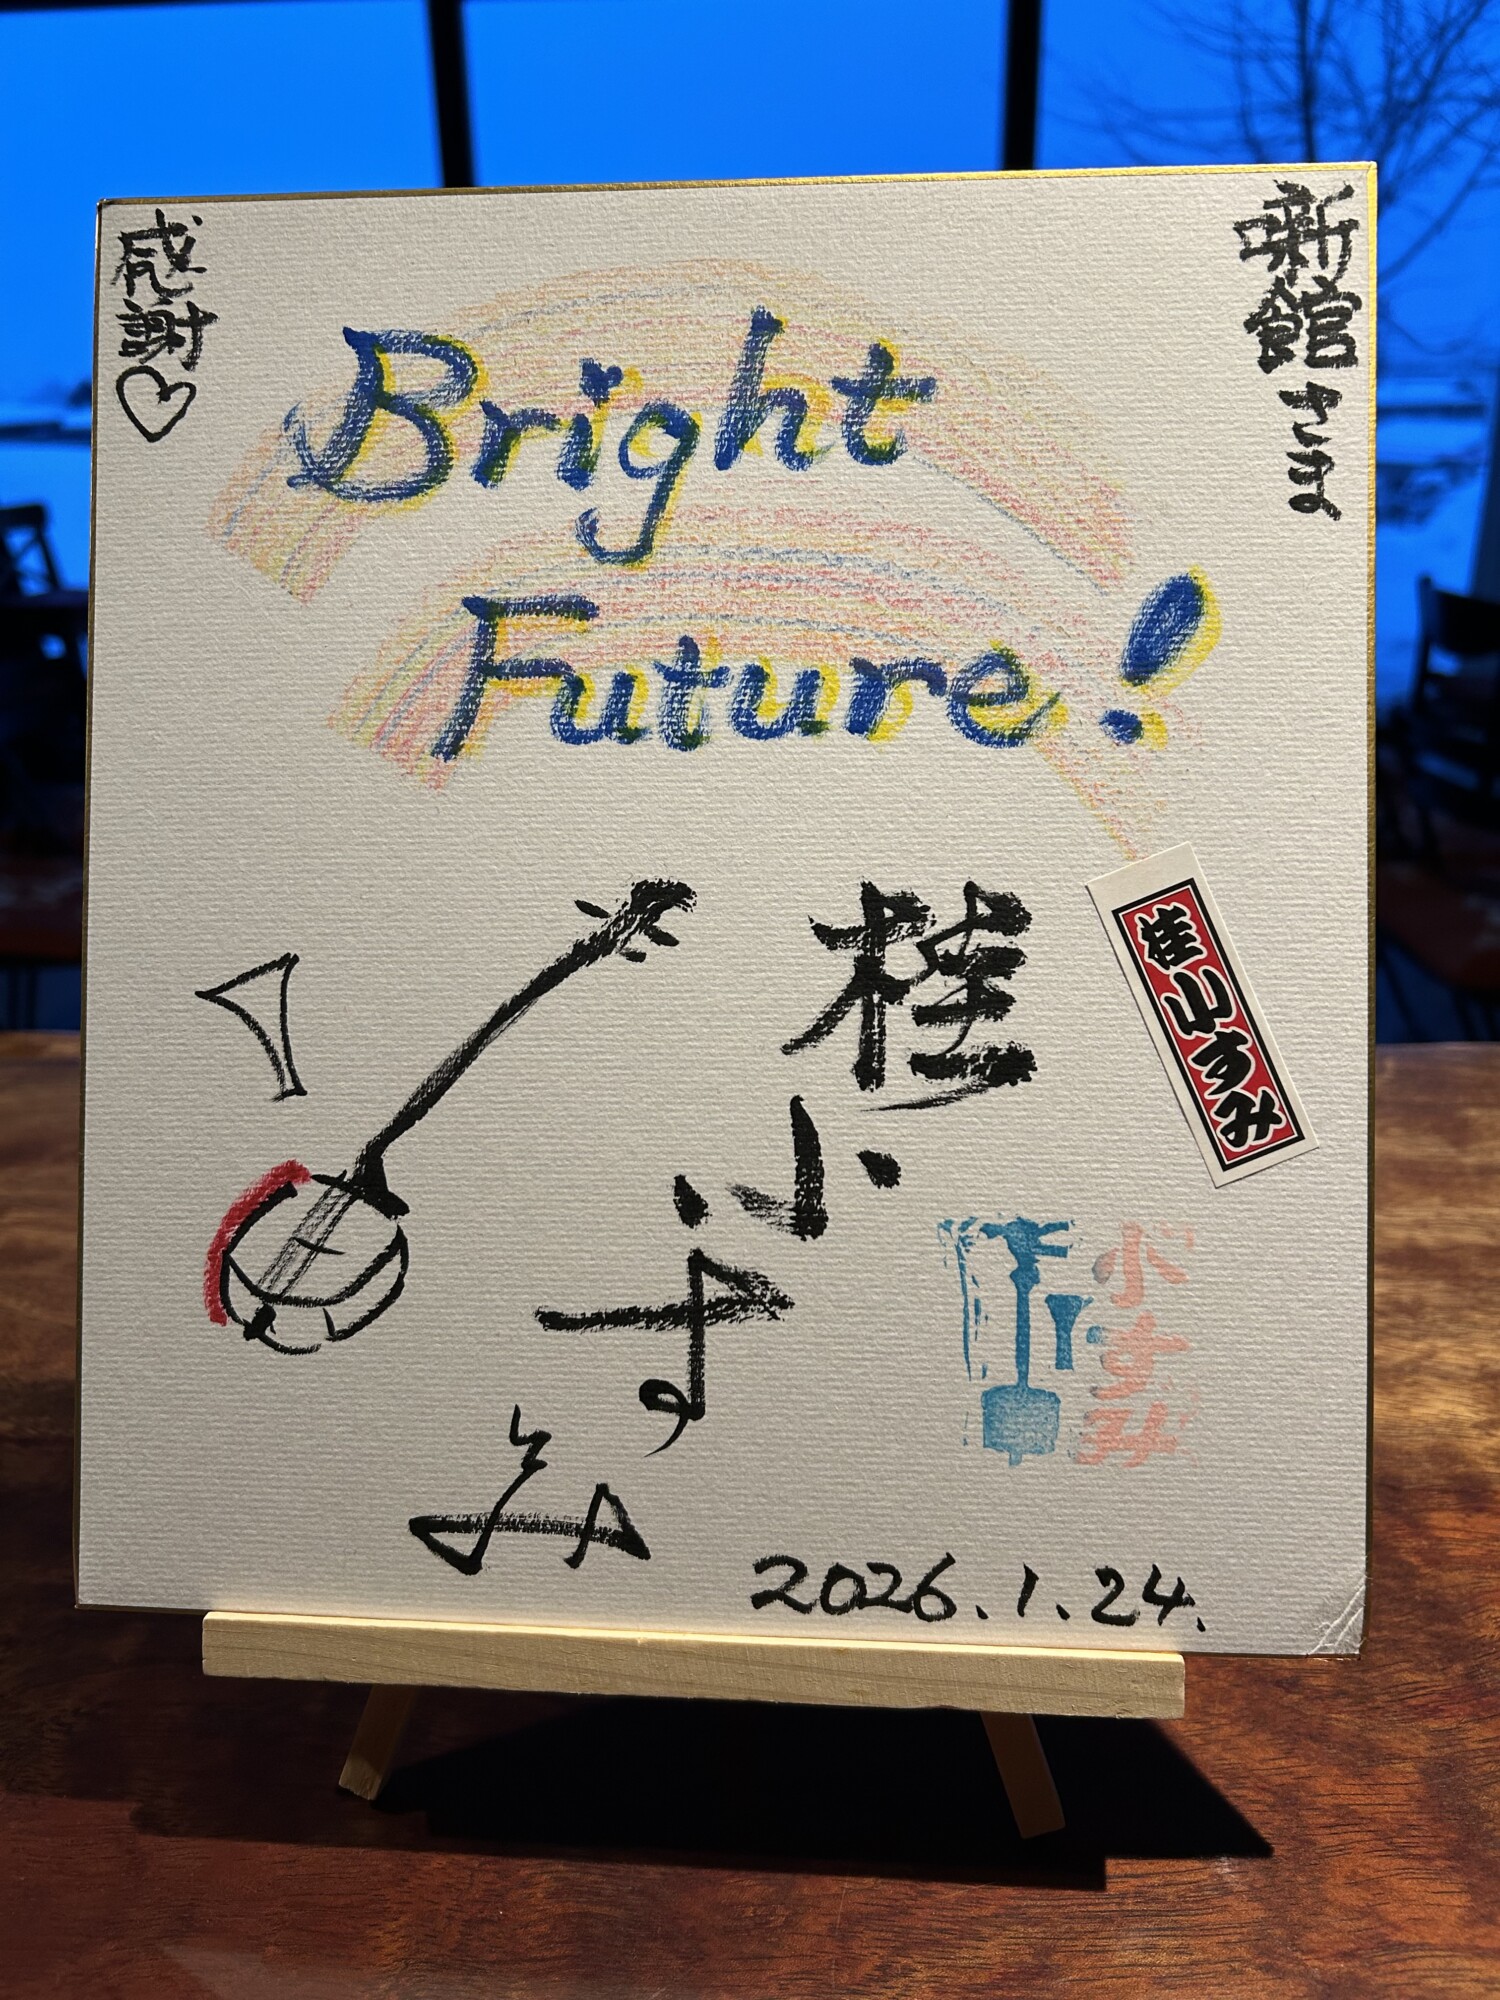 新館さま
感謝♡
Bright
Future!
桂小すみ
桂小すみ
小すみ
2026.1.24.